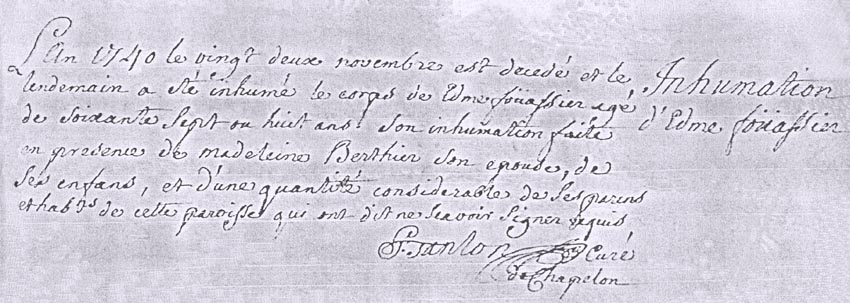 L'an 1740 le vingt deux novembre est decedé et le
lendemain a été inhumé le corps de Edme foüassier agé
de soixante Sept ou huit ans. Son inhumation faite
en presence de madeleine Berthier son epouse, de
Ses enfans, et d'une quantité considerable de Ses parens
et hab.ts de cette paroisse qui ont dit ne scavoir Signer requis
Curé
de Chapelon
Inhumation
d'Edme foüassier